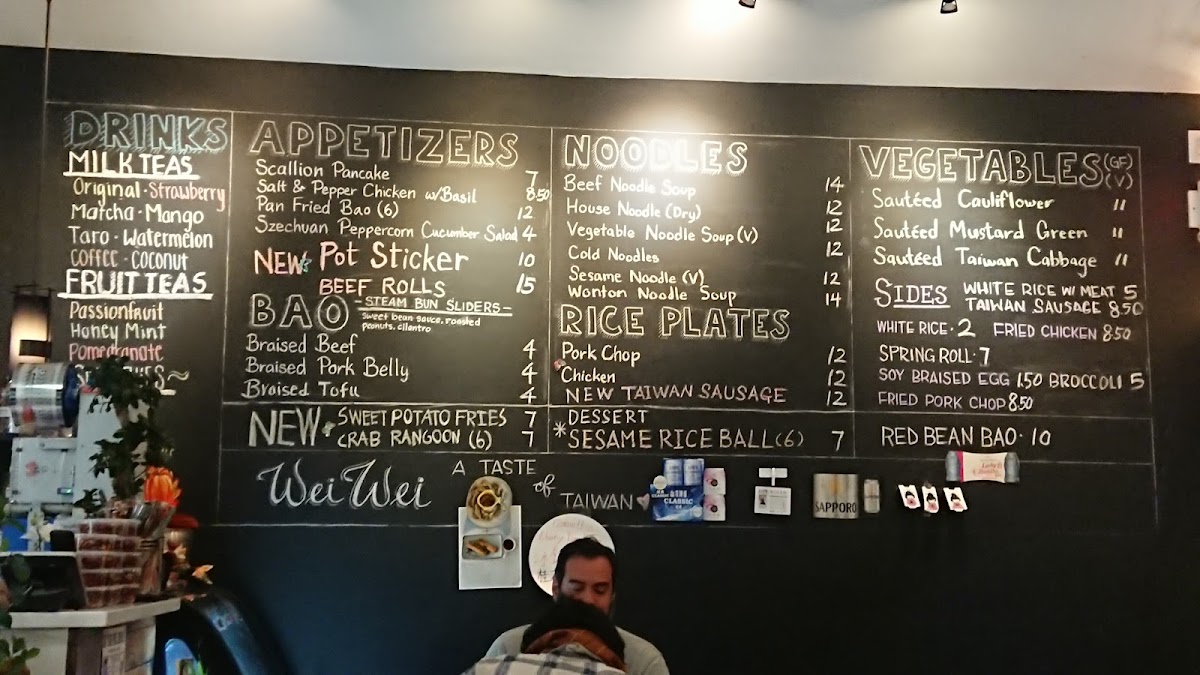 DRINKS
MILK TEAS
Original · Strawberry
Matcha · Mango
Taro · Watermelon
Coffee · Coconut
FRUIT TEAS
Passionfruit
Honey Mint
Pomegranate
APPETIZERS
Scallion Pancake 7
Salt & Pepper Chicken w/Basil 8.50
Pan Fried Bao (6) 12
Szechuan Peppercorn Cucumber Salad 4
NEW Pot Sticker 10
BEEF ROLLS 15
BAO - STEAM BUN SLIDERS -
sweet bean sauce, roasted
peanuts, cilantro
Braised Beef 4
Braised Pork Belly 4
Braised Tofu 4
NEW SWEET POTATO FRIES 7
CRAB RANGOON (6) 7
NOODLES
Beef Noodle Soup 14
House Noodle (Dry) 12
Vegetable Noodle Soup (V) 12
Cold Noodles
Sesame Noodle (V) 12
Wonton Noodle Soup 14
RICE PLATES
Pork Chop 12
Chicken 12
NEW TAIWAN SAUSAGE 12
DESSERT
* SESAME RICE BALL (6) 7
VEGETABLES (GF) (V)
Sautéed Cauliflower 11
Sautéed Mustard Green 11
Sautéed Taiwan Cabbage 11
SIDES WHITE RICE W/ MEAT 5
TAIWAN SAUSAGE 8.50
WHITE RICE · 2 FRIED CHICKEN 8.50
SPRING ROLL · 7
SOY BRAISED EGG 1.50 BROCCOLI 5
FRIED PORK CHOP 8.50
RED BEAN BAO · 10
Wei Wei
A TASTE
of
TAIWAN
CLASSIC
SAPPORO